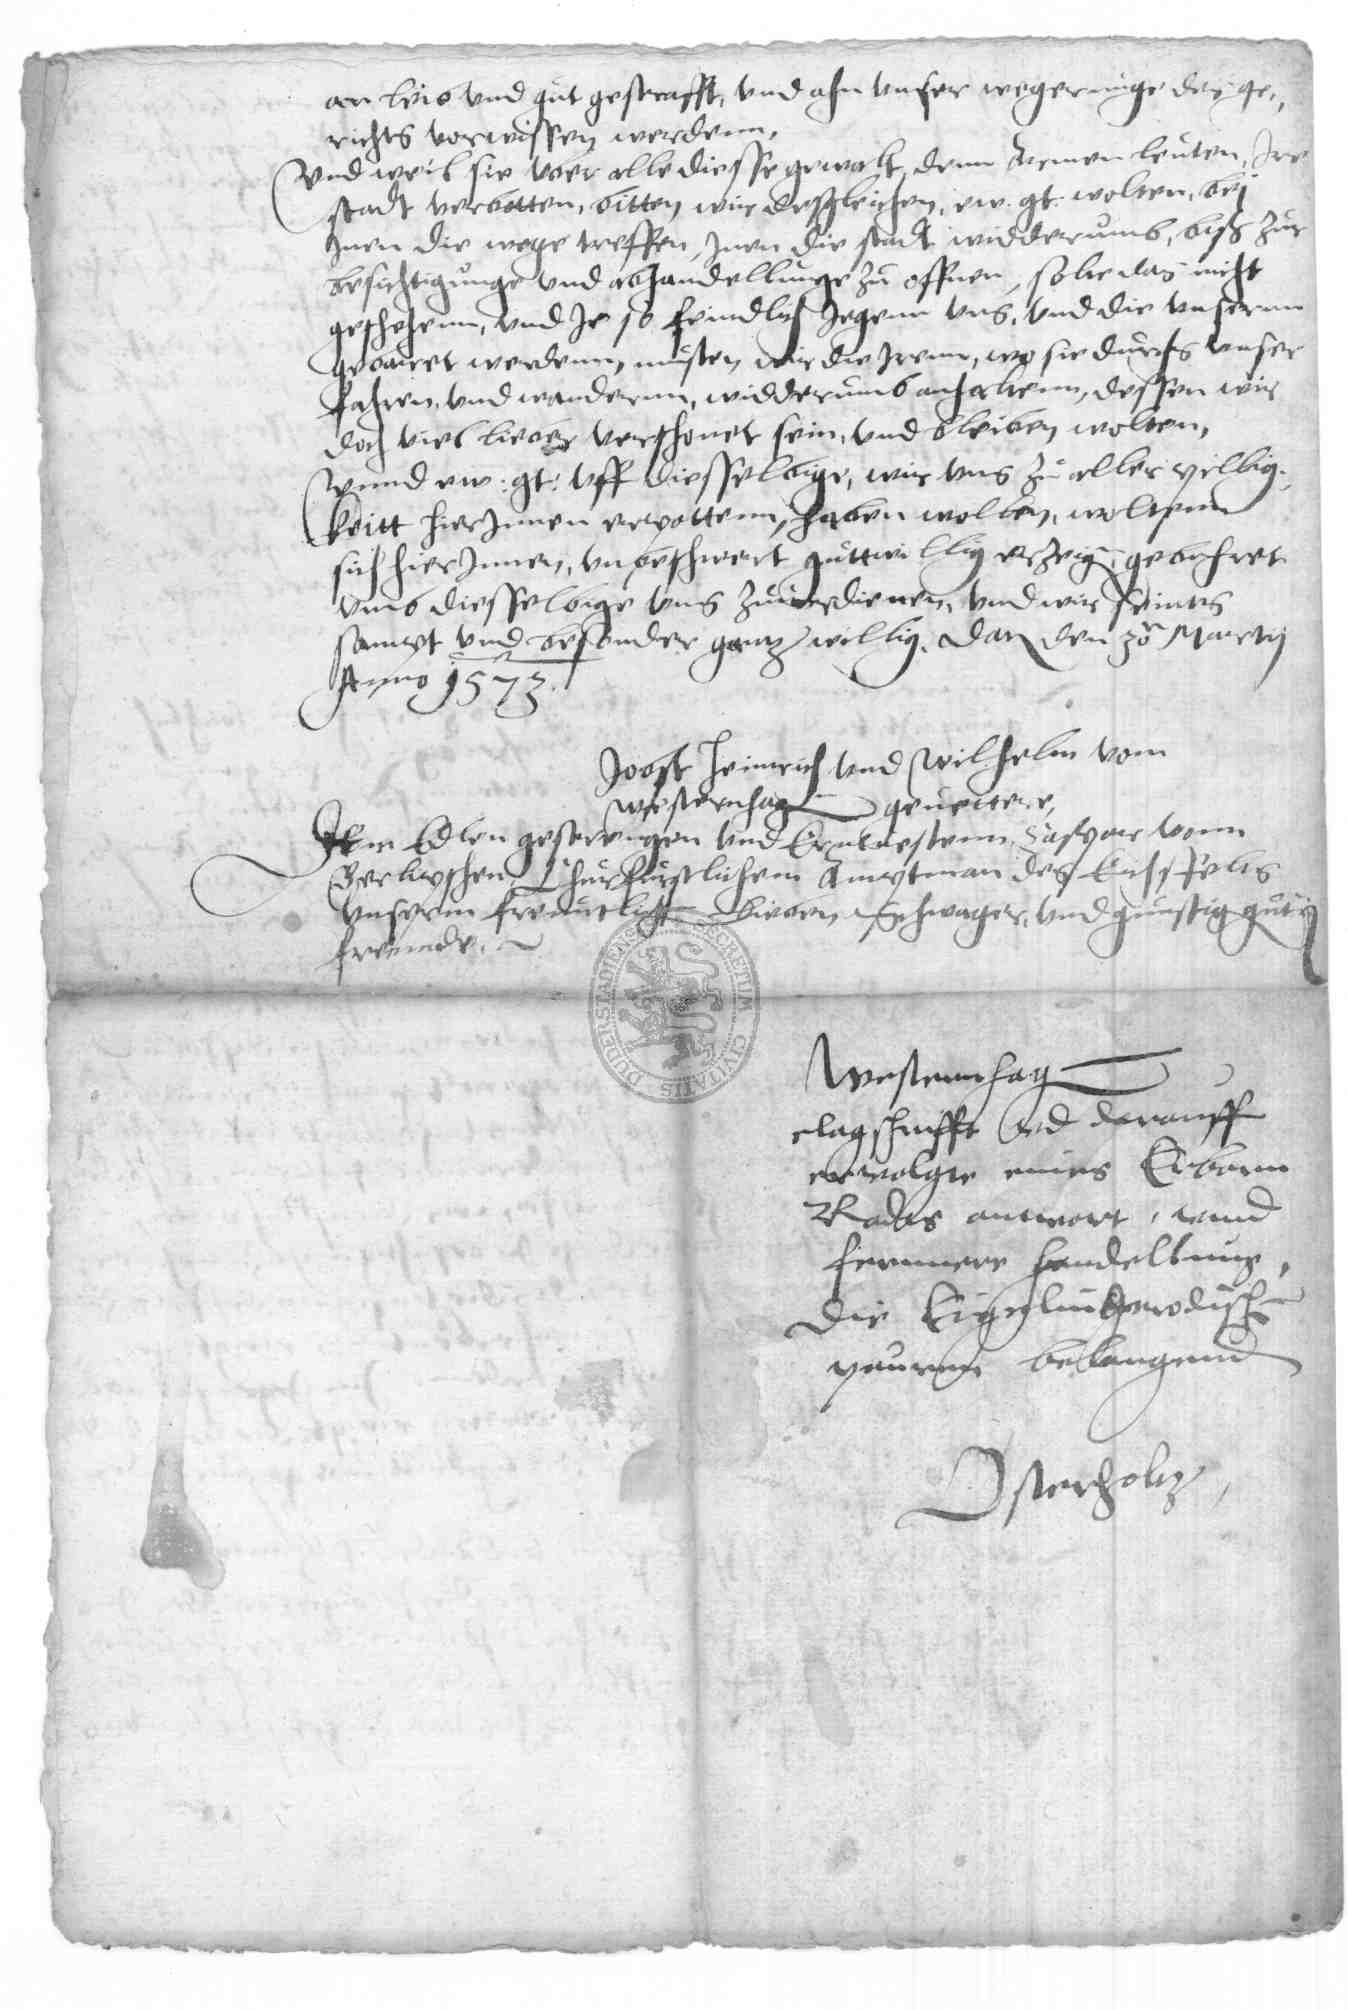 an leib vnd gut gestrafft, vnd ahn vnser wegerunge des ge„
richts vorwissen werdenn,
Vnd weil sie vber alle diesse gewalt, denn armen leuten, Ire
stadt verbotten, bitten wir desgleichen, ew. gt. wolten, bej
Inen die wege treffen, Inen die stadt widderumb, biss zur
besichtigunge vnd abhandellunge zu offnen, solte das nicht
geschehenn, vnd Je so feindlich Jegenn vns, vnd die vnsernn
gebaret werdenn, musten wir die Irenn, wo sie durchs vnser
fahren, vnd wandernn, widderumb anhaltenn, dessen wir
doch viel lieber verschonet sein, vnd bleiben wolten,
Vnnd ew: gt: vff diesselbige, wir vns zu aller pillig„
keitt hierInnen erpottenn, haben wolten, woltenn
sich hierInnen, vnbeschwert guttwillig erzeig, gebuhret
vmb diesselbige vns zuuerdienen, vnd wir seints
sampt vnd besonder gantz willig, Dat den 30 Martij
Anno 1573.
Joost Heinrich vnd Wilhelm vom
Westernhag geuettere,
Dem Edlen gestrengen vnd Ernuestenn, Casper vonn
Berlepschen, Churfurstlichem Amptman des Eichsfelts
vnserm freuntlich lieben Schwager, vnd gunstig gutt
freunde.
SECRETIM CIVITATIS DUDERSTADIENS
Westernhag
clagschrifft vnd darauff
ervolgte eines Erbarn
Radts antwort, vnnd
fernnere handellung,
Die Teistungerodisch
pauren belangend
Osterholtz,